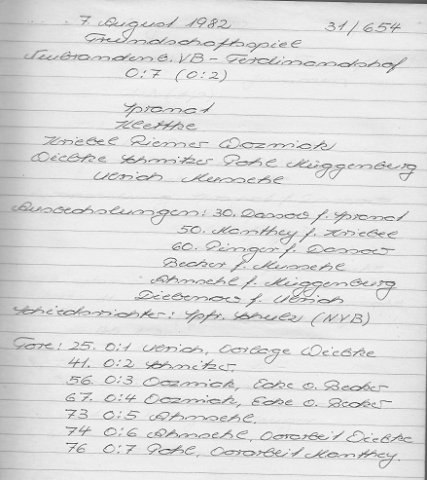 7 August 1982 31/654
Freundschaftsspiel
Neubrandenb. VB - Ferdinandshof
0:7 (0:2)
Ypranat
Klettke
Kriebel Riemer Wozniak
Wiebke Schnitzer Pohl Müggenburg
Ulrich Muschel
Auswechslungen: 30. Dassow f. Ypranat
50. Manthey f. Kriebel
60. Ringer f. Dassow
Becker f.
Ahmsehl f. Müggenburg
Diebenow f. Ulrich
Schiedsrichter: Spfr. Schulz (NVB)
Tore: 25. 0:1 Ulrich, Vorlage Wiebke
41. 0:2
56. 0:3 Wozniak, Ecke v. Becker
67. 0:4 Wozniak, Ecke v. Becker
73 0:5 Ahmsehl.
74 0:6 Ahmsehl, Vorarbeit Wiebke
76 0:7 Pohl, Vorarbeit Manthey.